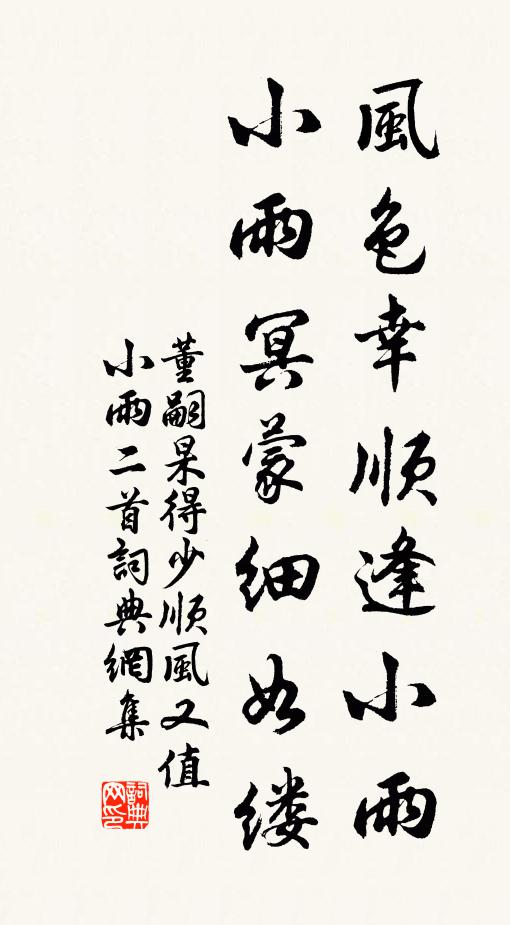 風色幸順逢小雨
小雨冥蒙細如縷
董嗣杲得少順風又值
小雨二首詞典網集
詞典
网印